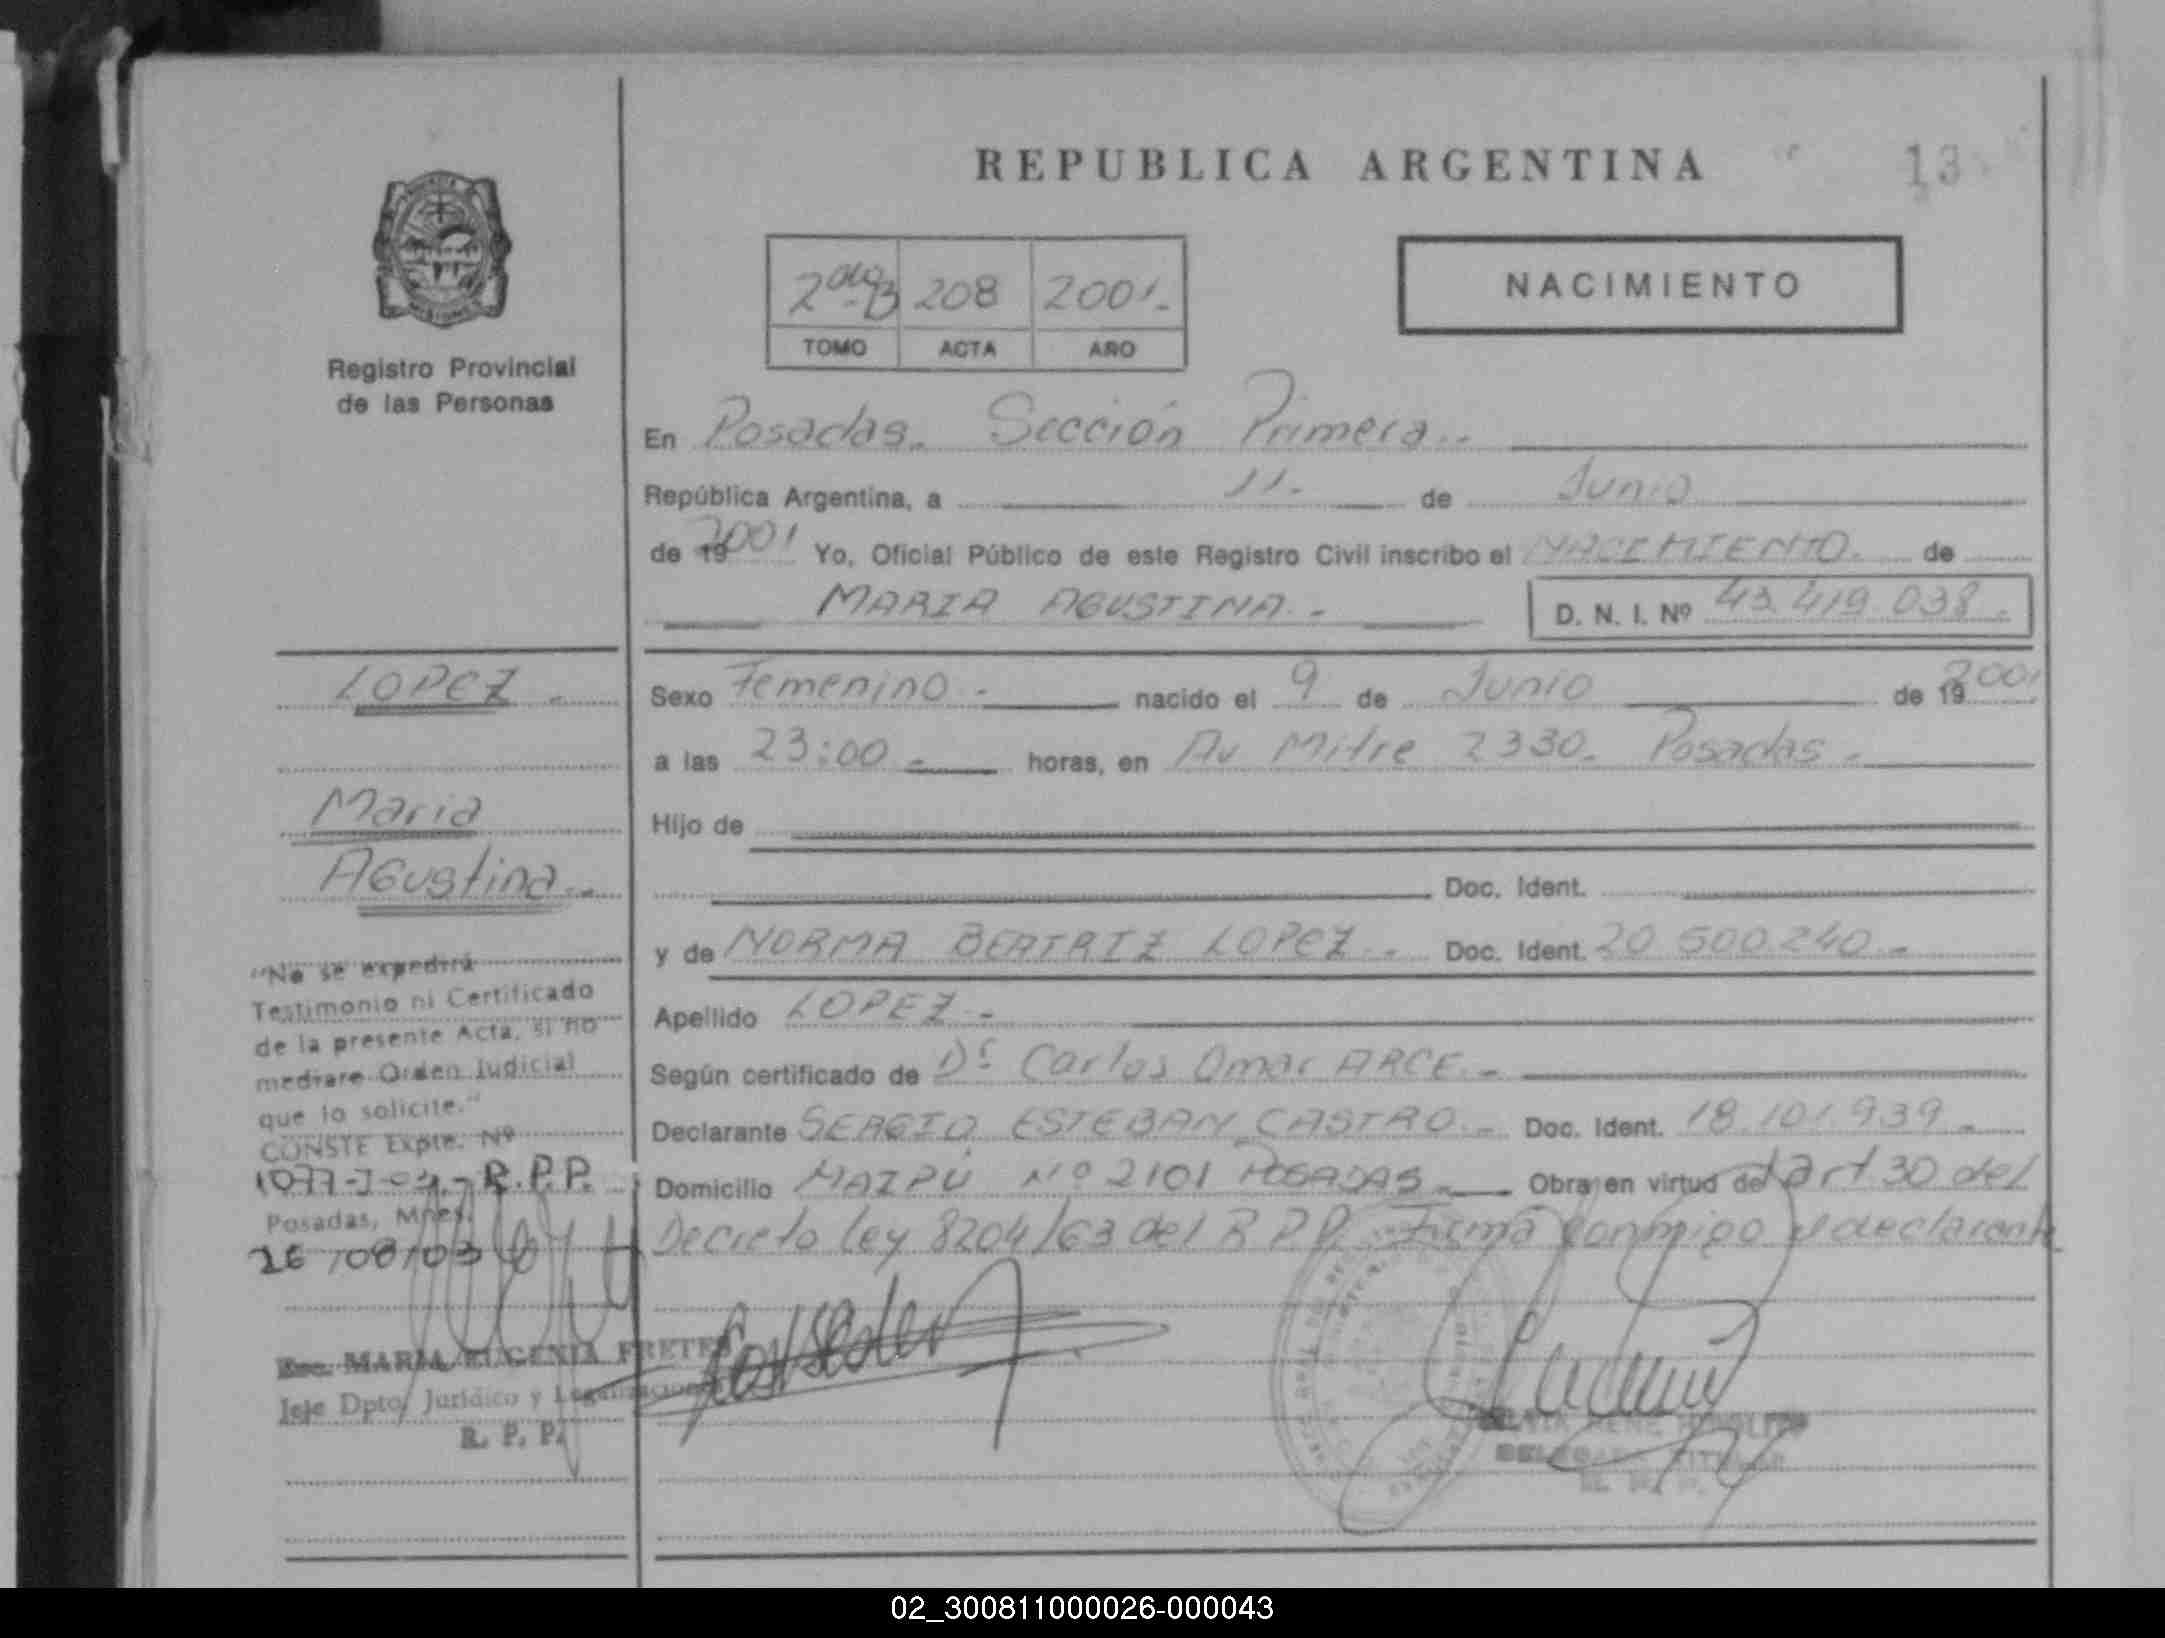 REPUBLICA ARGENTINA
13
2do B 208 2001.-
TOMO ACTA AÑO
NACIMIENTO
Registro Provincial
de las Personas
En Posadas.- Sección Primera.-
República Argentina, a 11.- de Junio
de 19 2001 Yo, Oficial Público de este Registro Civil inscribo el NACIMIENTO. de
MARIA AGUSTINA.- D. N. I. Nº 43.419.038.-
LOPEZ.-
Sexo Femenino.- nacido el 9 de Junio de 19 2001
a las 23:00.- horas, en Av Mitre 2330.- Posadas.-
Maria
Hijo de
Agustina.-
Doc. Ident.
y de NORMA BEATRIZ LOPEZ.- Doc. Ident. 20.500.240.-
Apellido LOPEZ.-
Según certificado de Dr Carlos Omar ARCE.-
Declarante SERGIO ESTEBAN CASTRO.- Doc. Ident. 18.101.939.-
Domicilio MAIPÚ Nº 2101 POSADAS.- Obra en virtud del art 30 del
Decreto Ley 8204/63 del R.P.P. Firma conmigo el declarante
"No se expedirá
Testimonio ni Certificado
de la presente Acta, si no
mediare Orden Judicial
que lo solicite."
CONSTE Expte. Nº
1077-J-03.- R.P.P.
Posadas, Mnes.
26/08/03
Esc. MARIA EUGENIA FRETES
Jefe Dpto. Jurídico y Legalizaciones
R. P. P.
DELEGADA TITULAR
02_300811000026-000043